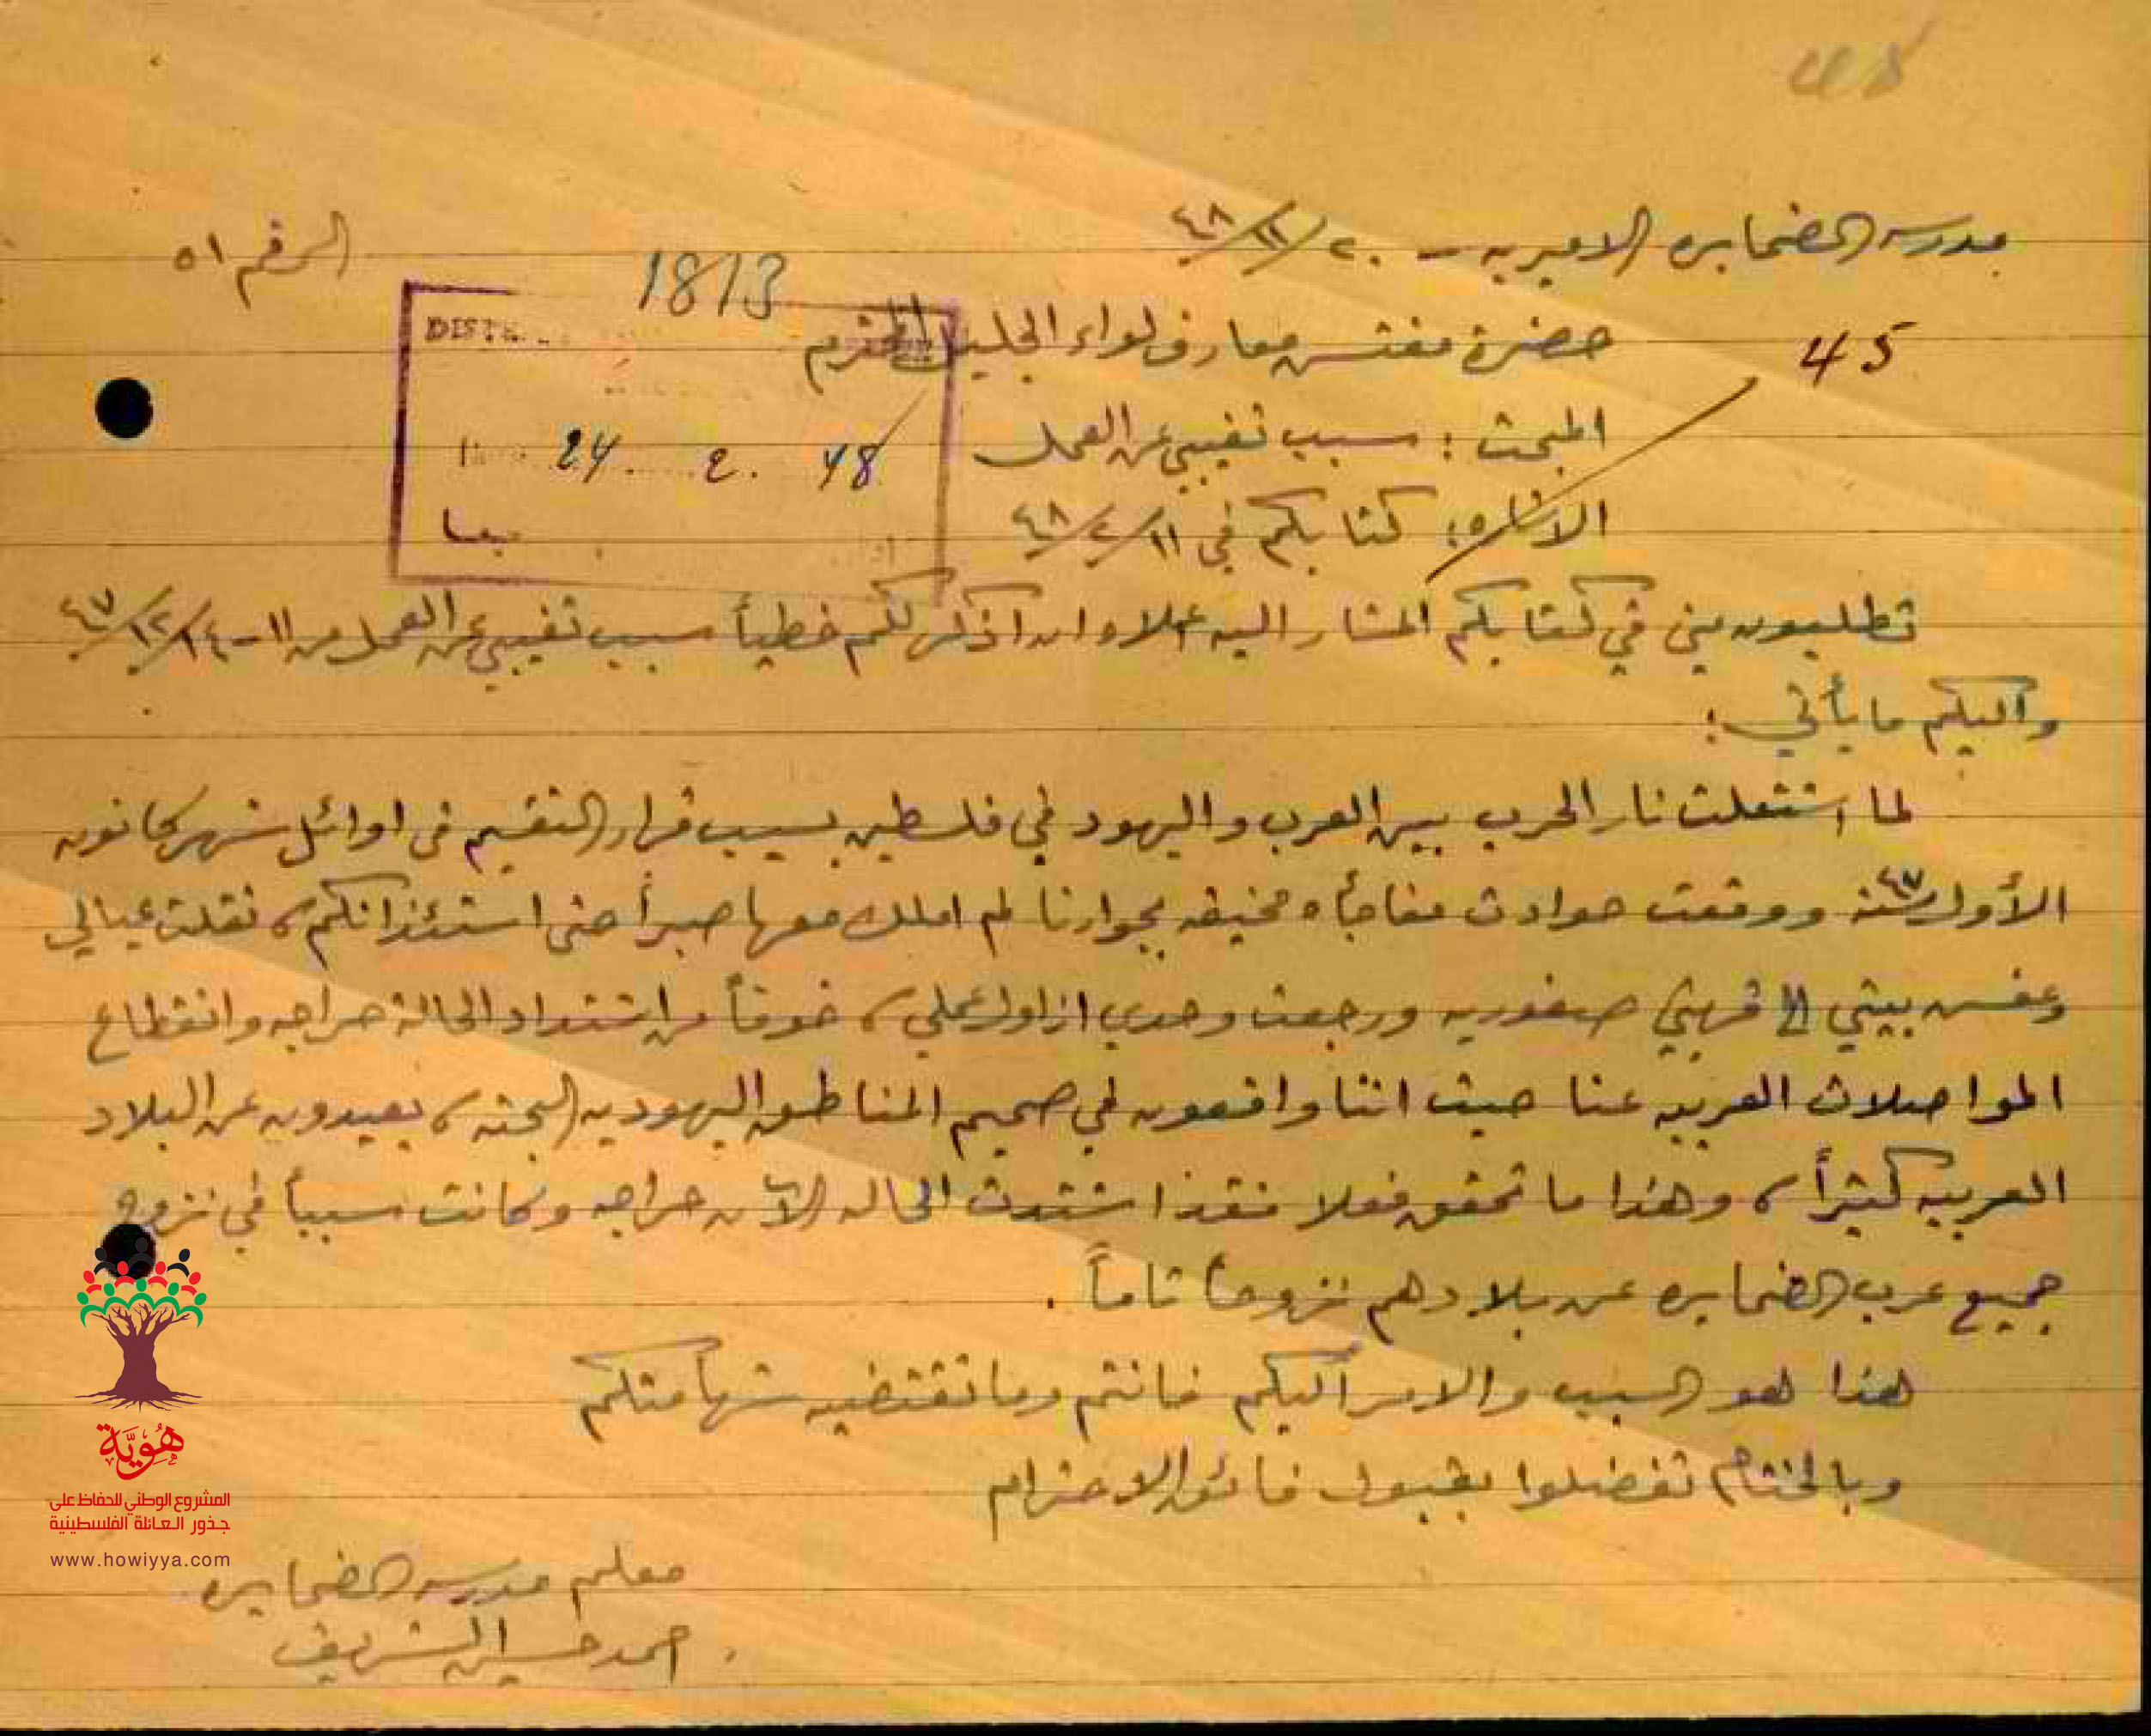 45
مدرسه الضمايره الاميريه – ٢٠/٢/٤٨
الرقم ٥١
1813
حضرة مفتش معارف لواء الجليل المحترم
45
DISTR
المبحث : سبب تغيبي عن العمل
24. 2. 48
الاشاره : كتابكم في ١١/٢/٤٨
تطلبون مني في كتابكم المشار اليه اعلاه ان اذكر لكم خطياً سبب تغيبي عن العمل من ١١-١٤/١٢/٤٧
واليكم ما يأتي :
لما اشتعلت نار الحرب بين العرب واليهود في فلسطين بسبب قرار التقسيم في اوائل شهر كانون
الأول سنة ٤٧ ووقعت حوادث مفاجأه مخيفه بجوارنا لم املك معها صبراً حتى استئذانكم، نقلت عيالي
وعفش بيتي الى قريتي صفوريه ورجعت وحدي ازاول عملي، خوفاً من اشتداد الحالة حراجه وانقطاع
المواصلات العربيه عنا حيث اننا واقعون في صميم المناطق اليهوديه البحته، بعيدون عن البلاد
العربيه كثيراً، وهذا ما تحقق فعلا فقد اشتدت الحاله الآن حراجه وكانت سبباً في نزوح
جميع عرب الضمايره عن بلادهم نزوحاً تاماً .
هذا هو السبب والامر اليكم فانتم وما تقتضيه شهامتكم
وبالختام تفضلوا بقبول فائق الاحترام
معلم مدرسه الضمايره
احمد حسين الشريف
هُوِيَّة
المشروع الوطني للحفاظ على
جذور العائلة الفلسطينية
www.howiyya.com